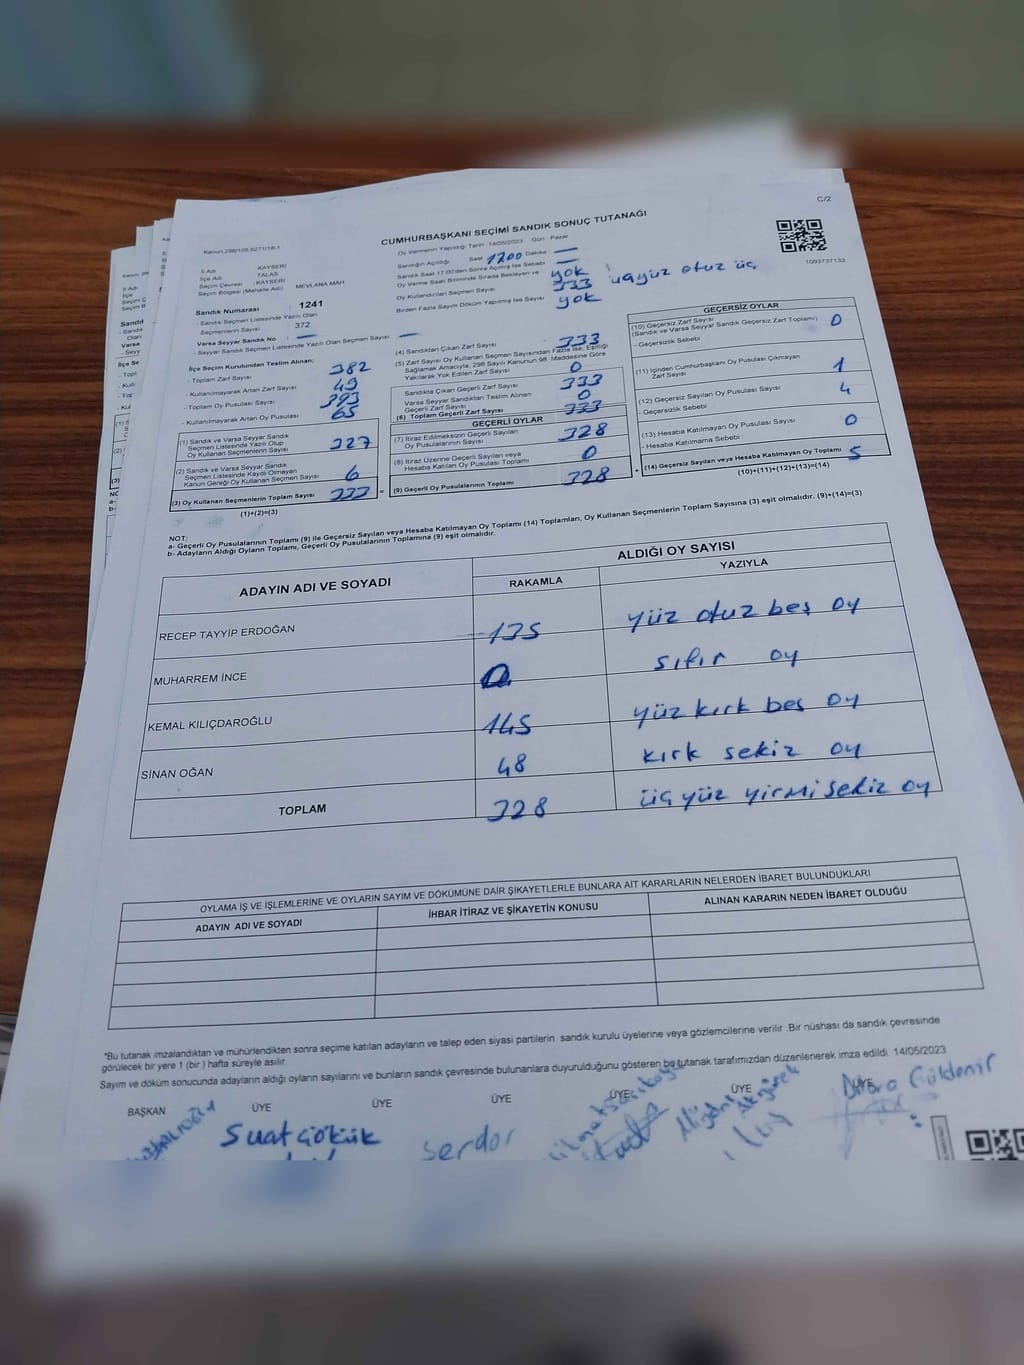 C/2
CUMHURBAŞKANI SEÇİMİ SANDIK SONUÇ TUTANAĞI
1093737133
İl Adı KAYSERİ
İlçe Adı TALAS
Seçim Çevresi : KAYSERİ
Seçim Bölgesi (Mahalle Adı) MEVLANA MAH
Sandık Numarası 1241
- Sandık Seçmen Listesinde Yazılı Olan
Seçmenlerin Sayısı 372
Varsa Seyyar Sandık No —
- Seyyar Sandık Seçmen Listesinde Yazılı Olan Seçmen Sayısı —
Oy Vermenin Yapıldığı Tarih 14/05/2023 Gün : Pazar
Sandığın Açıldığı Saat 1700 Dakika —
Sandık Saat 17:00'den Sonra Açılmış İse Sebebi —
Oy Verme Saati Bitiminde Sırada Bekleyen ve yok
Oy Kullandırılan Seçmen Sayısı 333 üçyüz otuz üç
Birden Fazla Sayım Döküm Yapılmış İse Sayısı yok
İlçe Seçim Kurulundan Teslim Alınan;
- Toplam Zarf Sayısı 382
- Kullanılmayarak Artan Zarf Sayısı 49
- Toplam Oy Pusulası Sayısı 393
- Kullanılmayarak Artan Oy Pusulası 65
(1) Sandık ve Varsa Seyyar Sandık
Seçmen Listesinde Yazılı Olup
Oy Kullanan Seçmenlerin Sayısı 327
(2) Sandık ve Varsa Seyyar Sandık
Seçmen Listesinde Kayıtlı Olmayan
Kanun Gereği Oy Kullanan Seçmen Sayısı 6
(3) Oy Kullanan Seçmenlerin Toplam Sayısı 333
(1)+(2)=(3)
(4) Sandıktan Çıkan Zarf Sayısı 333
(5) Zarf Sayısı Oy Kullanan Seçmen Sayısından Fazla İse, Eşitliği
Sağlamak Amacıyla, 298 Sayılı Kanunun 98. Maddesine Göre
Yakılarak Yok Edilen Zarf Sayısı 0
Sandıkta Çıkan Geçerli Zarf Sayısı 333
Varsa Seyyar Sandıktan Teslim Alınan
Geçerli Zarf Sayısı 0
(6) Toplam Geçerli Zarf Sayısı 333
GEÇERLİ OYLAR
(7) İtiraz Edilmeksizin Geçerli Sayılan
Oy Pusulalarının Sayısı 328
(8) İtiraz Üzerine Geçerli Sayılan veya
Hesaba Katılan Oy Pusulası Toplamı 0
(9) Geçerli Oy Pusulalarının Toplamı 328
GEÇERSİZ OYLAR
(10) Geçersiz Zarf Sayısı
(Sandık ve Varsa Seyyar Sandık Geçersiz Zarf Toplamı) 0
- Geçersizlik Sebebi
(11) İçinden Cumhurbaşkanı Oy Pusulası Çıkmayan
Zarf Sayısı 1
(12) Geçersiz Sayılan Oy Pusulası Sayısı 4
- Geçersizlik Sebebi
(13) Hesaba Katılmayan Oy Pusulası Sayısı 0
- Hesaba Katılmama Sebebi
(14) Geçersiz Sayılan veya Hesaba Katılmayan Oy Toplamı 5
(10)+(11)+(12)+(13)=(14)
NOT:
a- Geçerli Oy Pusulalarının Toplamı (9) ile Geçersiz Sayılan veya Hesaba Katılmayan Oy Toplamı (14) Toplamları, Oy Kullanan Seçmenlerin Toplam Sayısına (3) eşit olmalıdır. (9)+(14)=(3)
b- Adayların Aldığı Oyların Toplamı, Geçerli Oy Pusulalarının Toplamına (9) eşit olmalıdır.
ADAYIN ADI VE SOYADI ALDIĞI OY SAYISI
RAKAMLA YAZIYLA
RECEP TAYYİP ERDOĞAN 135 yüz otuz beş oy
MUHARREM İNCE 0 sıfır oy
KEMAL KILIÇDAROĞLU 145 yüz kırk beş oy
SİNAN OĞAN 48 kırk sekiz oy
TOPLAM 328 üç yüz yirmi sekiz oy
OYLAMA İŞ VE İŞLEMLERİNE VE OYLARIN SAYIM VE DÖKÜMÜNE DAİR ŞİKAYETLERLE BUNLARA AİT KARARLARIN NELERDEN İBARET BULUNDUKLARI
ADAYIN ADI VE SOYADI İHBAR İTİRAZ VE ŞİKAYETİN KONUSU ALINAN KARARIN NEDEN İBARET OLDUĞU
*Bu tutanak imzalandıktan ve mühürlendikten sonra seçime katılan adayların ve talep eden siyasi partilerin sandık kurulu üyelerine veya gözlemcilerine verilir .Bir nüshası da sandık çevresinde
görülecek bir yere 1 (bir ) hafta süreyle asılır.
Sayım ve döküm sonucunda adayların aldığı oyların sayılarını ve bunların sandık çevresinde bulunanlara duyurulduğunu gösteren bu tutanak tarafımızdan düzenlenerek imza edildi. 14/05/2023
BAŞKAN ÜYE ÜYE ÜYE ÜYE ÜYE ÜYE
Suat Gökük Serdar